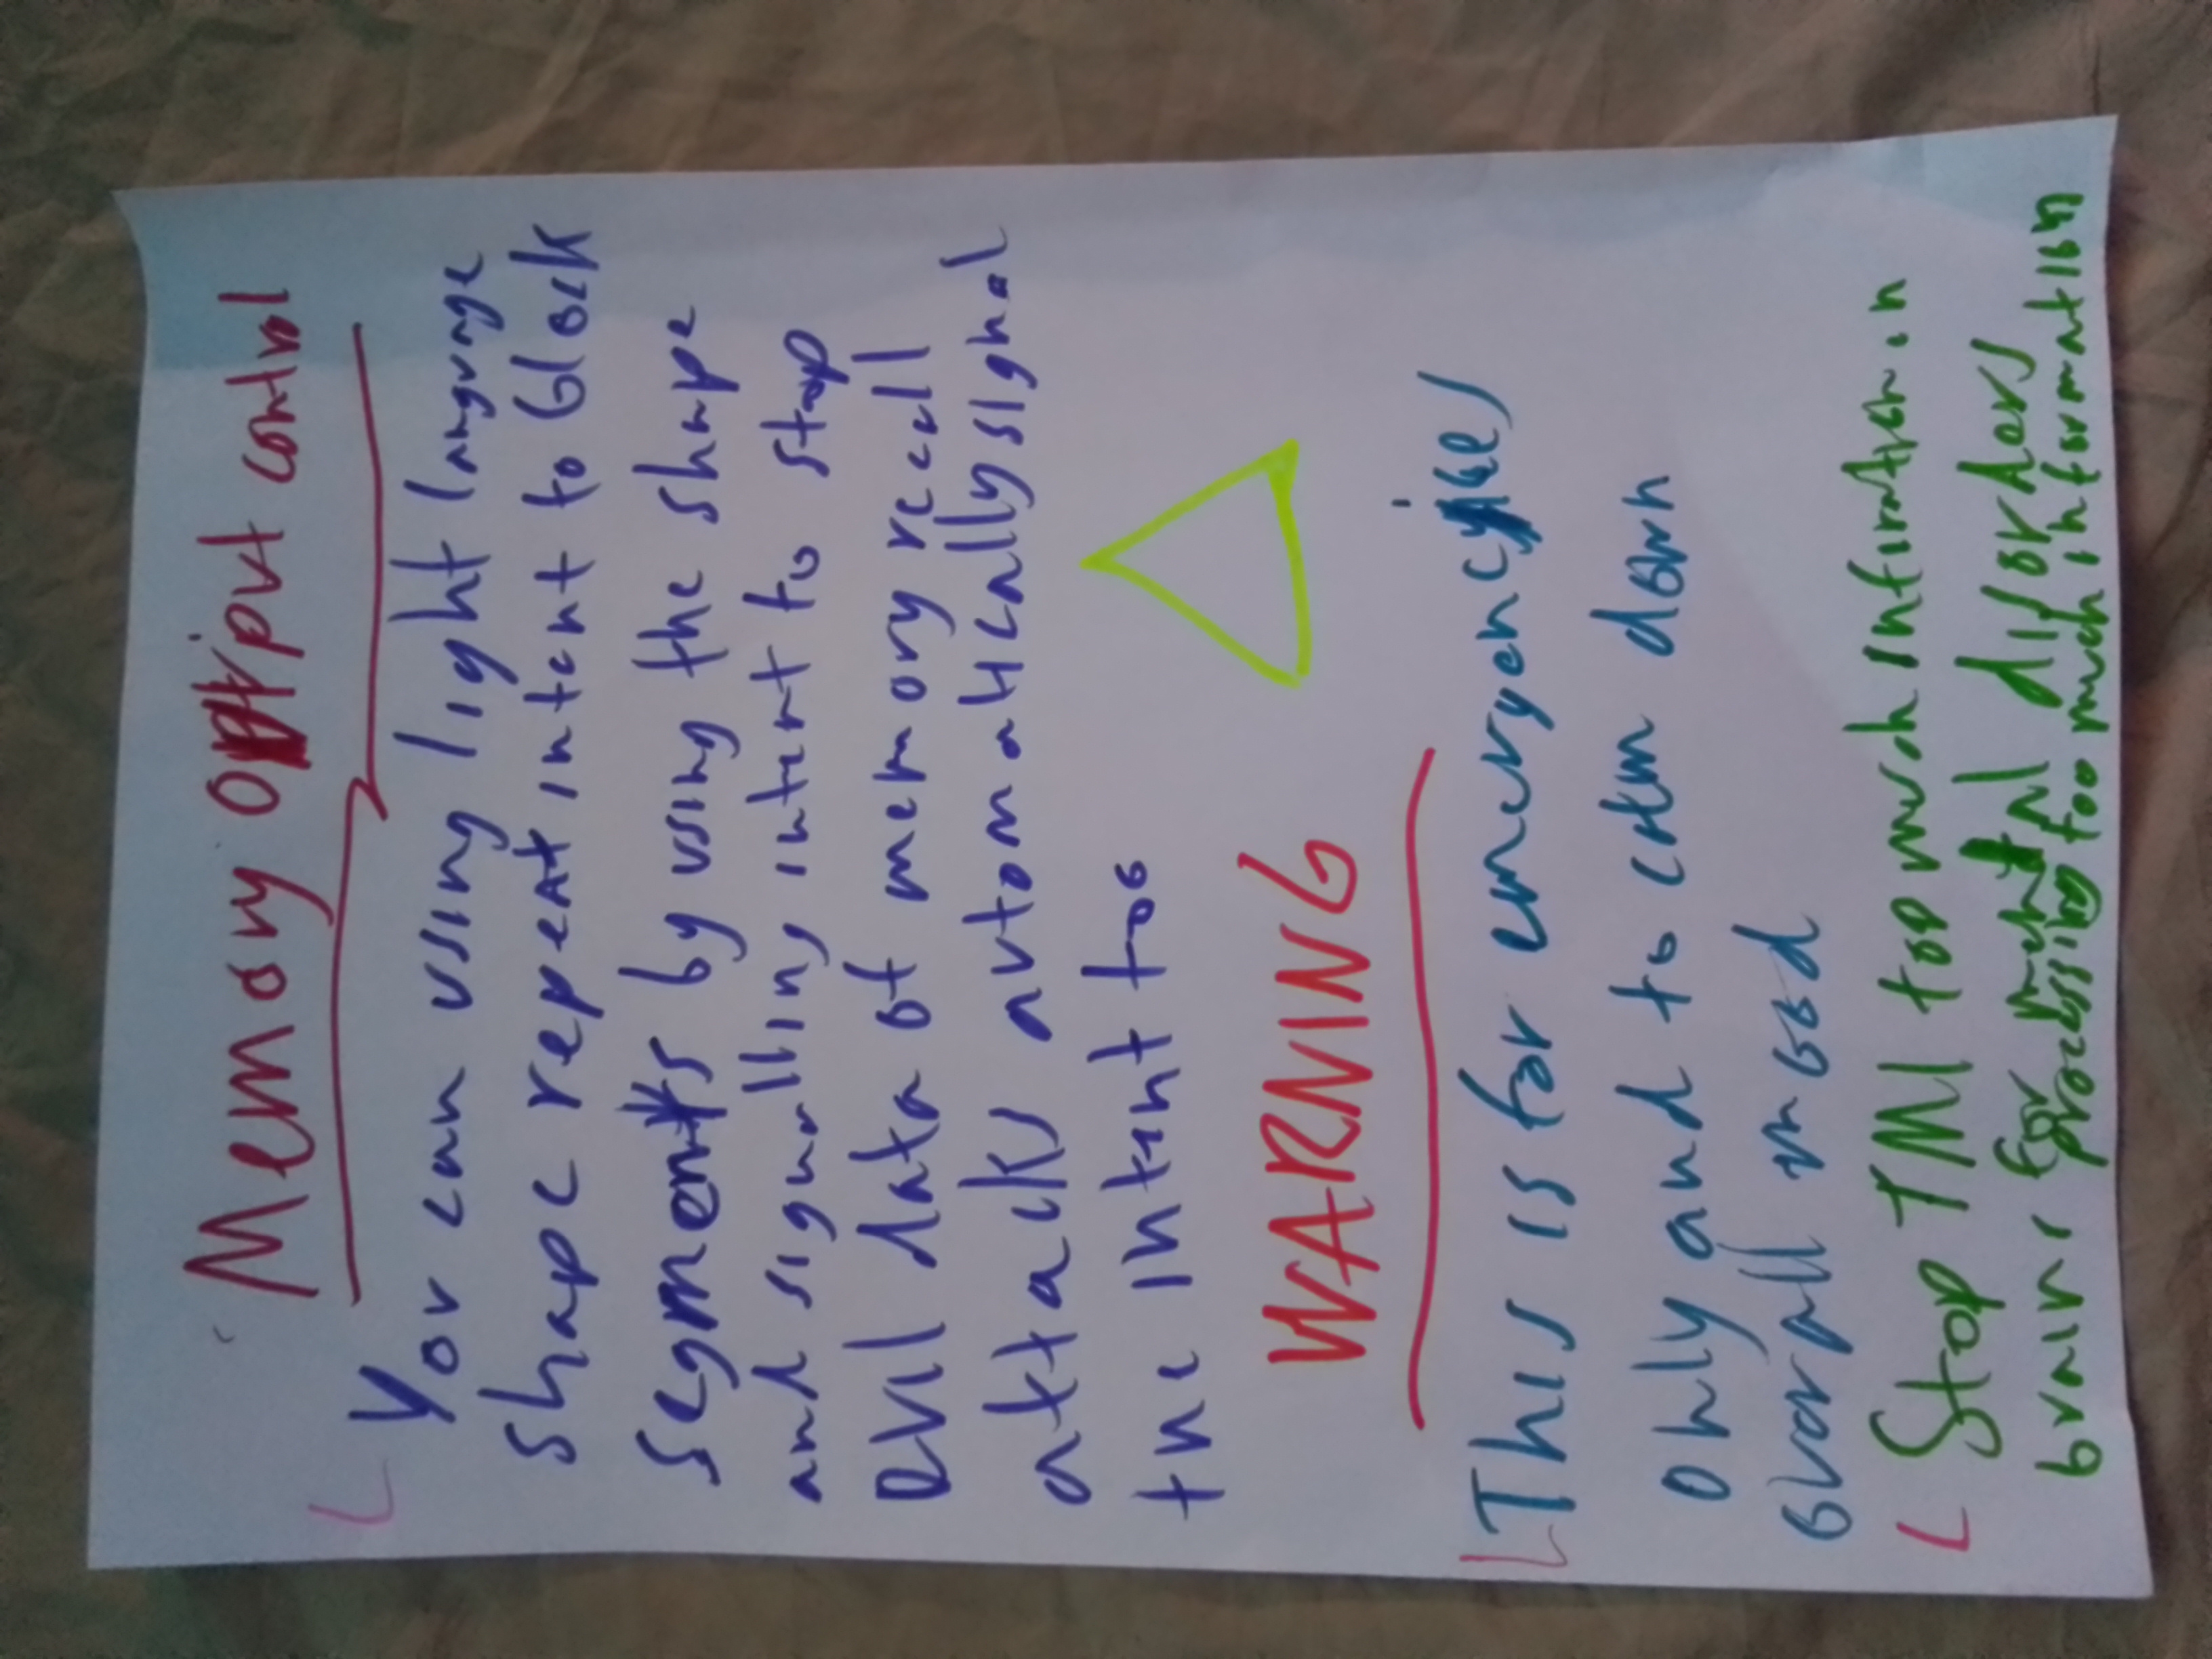 Memory control
You can using light language
shape repeat intent to block
segments by using the shape
and signalling intent to stop
Evil data of memory recall
attacks automatically signal
the intent too
WARNING
This is for emergencyies
only and to calm down
overall mood
Stop TMI too much information
brain disorders
processing too much information